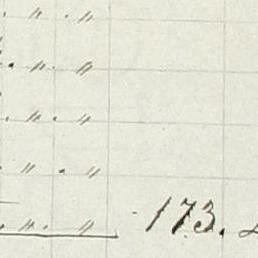 " . "
. " . "
. " . "
" . "
. " . " 173.